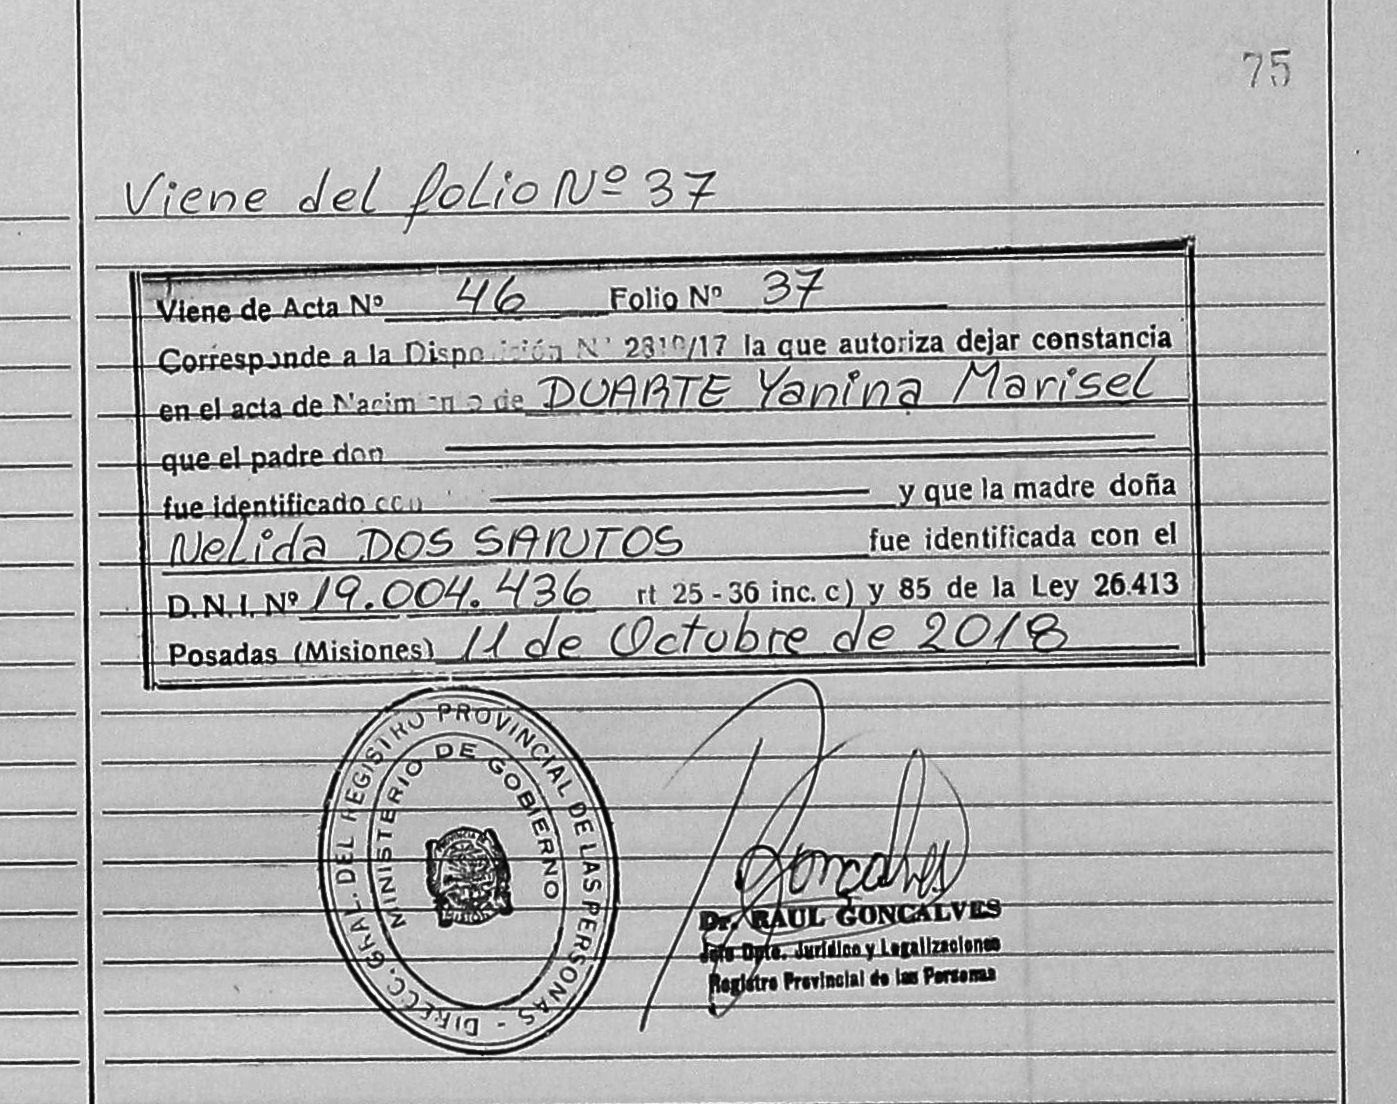 75
Viene del folio Nº 37
Viene de Acta Nº 46 Folio Nº 37
Corresponde a la Disposición Nº /17 la que autoriza dejar constancia
en el acta de Nacimiento de DUARTE Yanina Marisel
que el padre don
fue identificado con y que la madre doña
Nelida DOS SANTOS fue identificada con el
D.N.I. Nº 19.004.436 rt 25 - 36 inc. c) y 85 de la Ley 26.413
Posadas (Misiones) 11 de Octubre de 2018
DIRECC. GRAL. DEL REGISTRO PROVINCIAL DE LAS PERSONAS -
MINISTERIO DE GOBIERNO
Gonçalves
Dr. RAUL GONCALVES
Jefe Dpto. Jurídico y Legalizaciones
Registro Provincial de las Personas